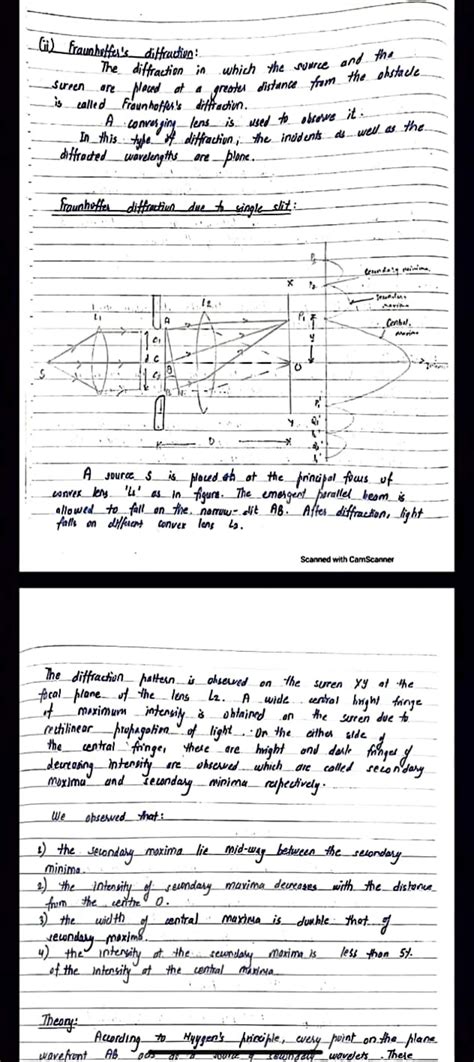 (ii) Fraunhoffer's diffraction:
The diffraction in which the source and the
screen are placed at a greater distance from the obstacle
is called Fraunhoffer's diffraction.
A converging lens is used to observe it.
In this type of diffraction, the incidents as well as the
diffracted wavelengths are plane.
Fraunhoffer diffraction due to single slit:
secondary minima
secondary
maxima
Central
maxima
X
L1
L2
A
P1
y
S
C
B
O
D
Y
A source S is placed at the principal focus of
convex lens 'L1' as in figure. The emergent parallel beam is
allowed to fall on the narrow-slit AB. After diffraction, light
falls on different convex lens L2.
Scanned with CamScanner
The diffraction pattern is observed on the surren XY at the
focal plane of the lens L2. A wide central bright fringe
of maximum intensity is obtained on the surren due to
rectilinear propagation of light. On the either side of
the central fringe, there are bright and dark fringes of
decreasing intensity are observed which are called secondary
maxima and secondary minima respectively.
We observed that:
1) the secondary maxima lie mid-way between the secondary
minima.
2) the intensity of secondary maxima decreases with the distance
from the centre O.
3) the width of central maxima is double that of
secondary maxima.
4) the intensity at the secondary maxima is less than 5%
of the intensity at the central maxima
Theory:
According to Huygen's principle, every point on the plane
wavefront AB acts as a source of secondary wavelets. There